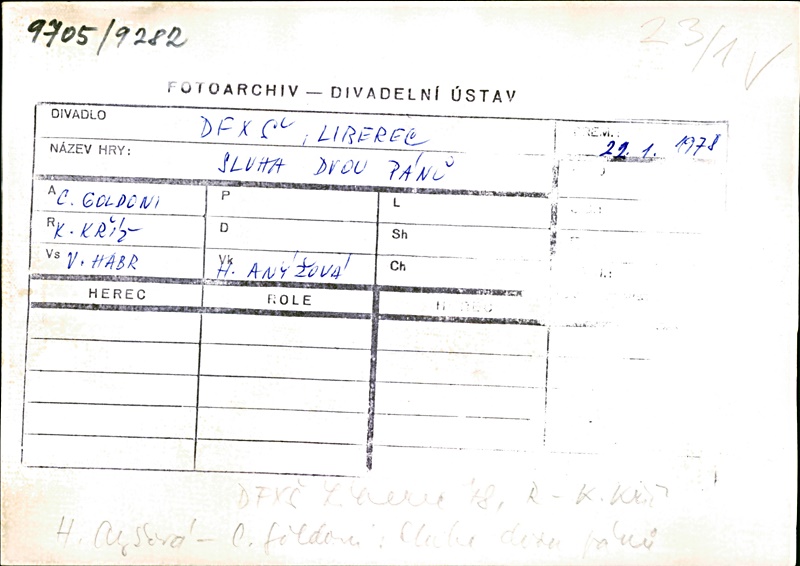 9705/9282
23/1 V
FOTOARCHIV — DIVADELNÍ ÚSTAV
DIVADLO DFXŠ, LIBEREC
PREM.: 22. 1. 1978
NÁZEV HRY: SLUHA DVOU PÁNŮ
A C. GOLDONI P L
R K. KŘÍŽ D Sh
Vs V. HÁBR Vk H. ANÝŽOVÁ Ch
HEREC ROLE
DFXŠ Liberec 78, R - K. Kříž
H. Anýžová - C. Goldoni: Sluha dvou pánů